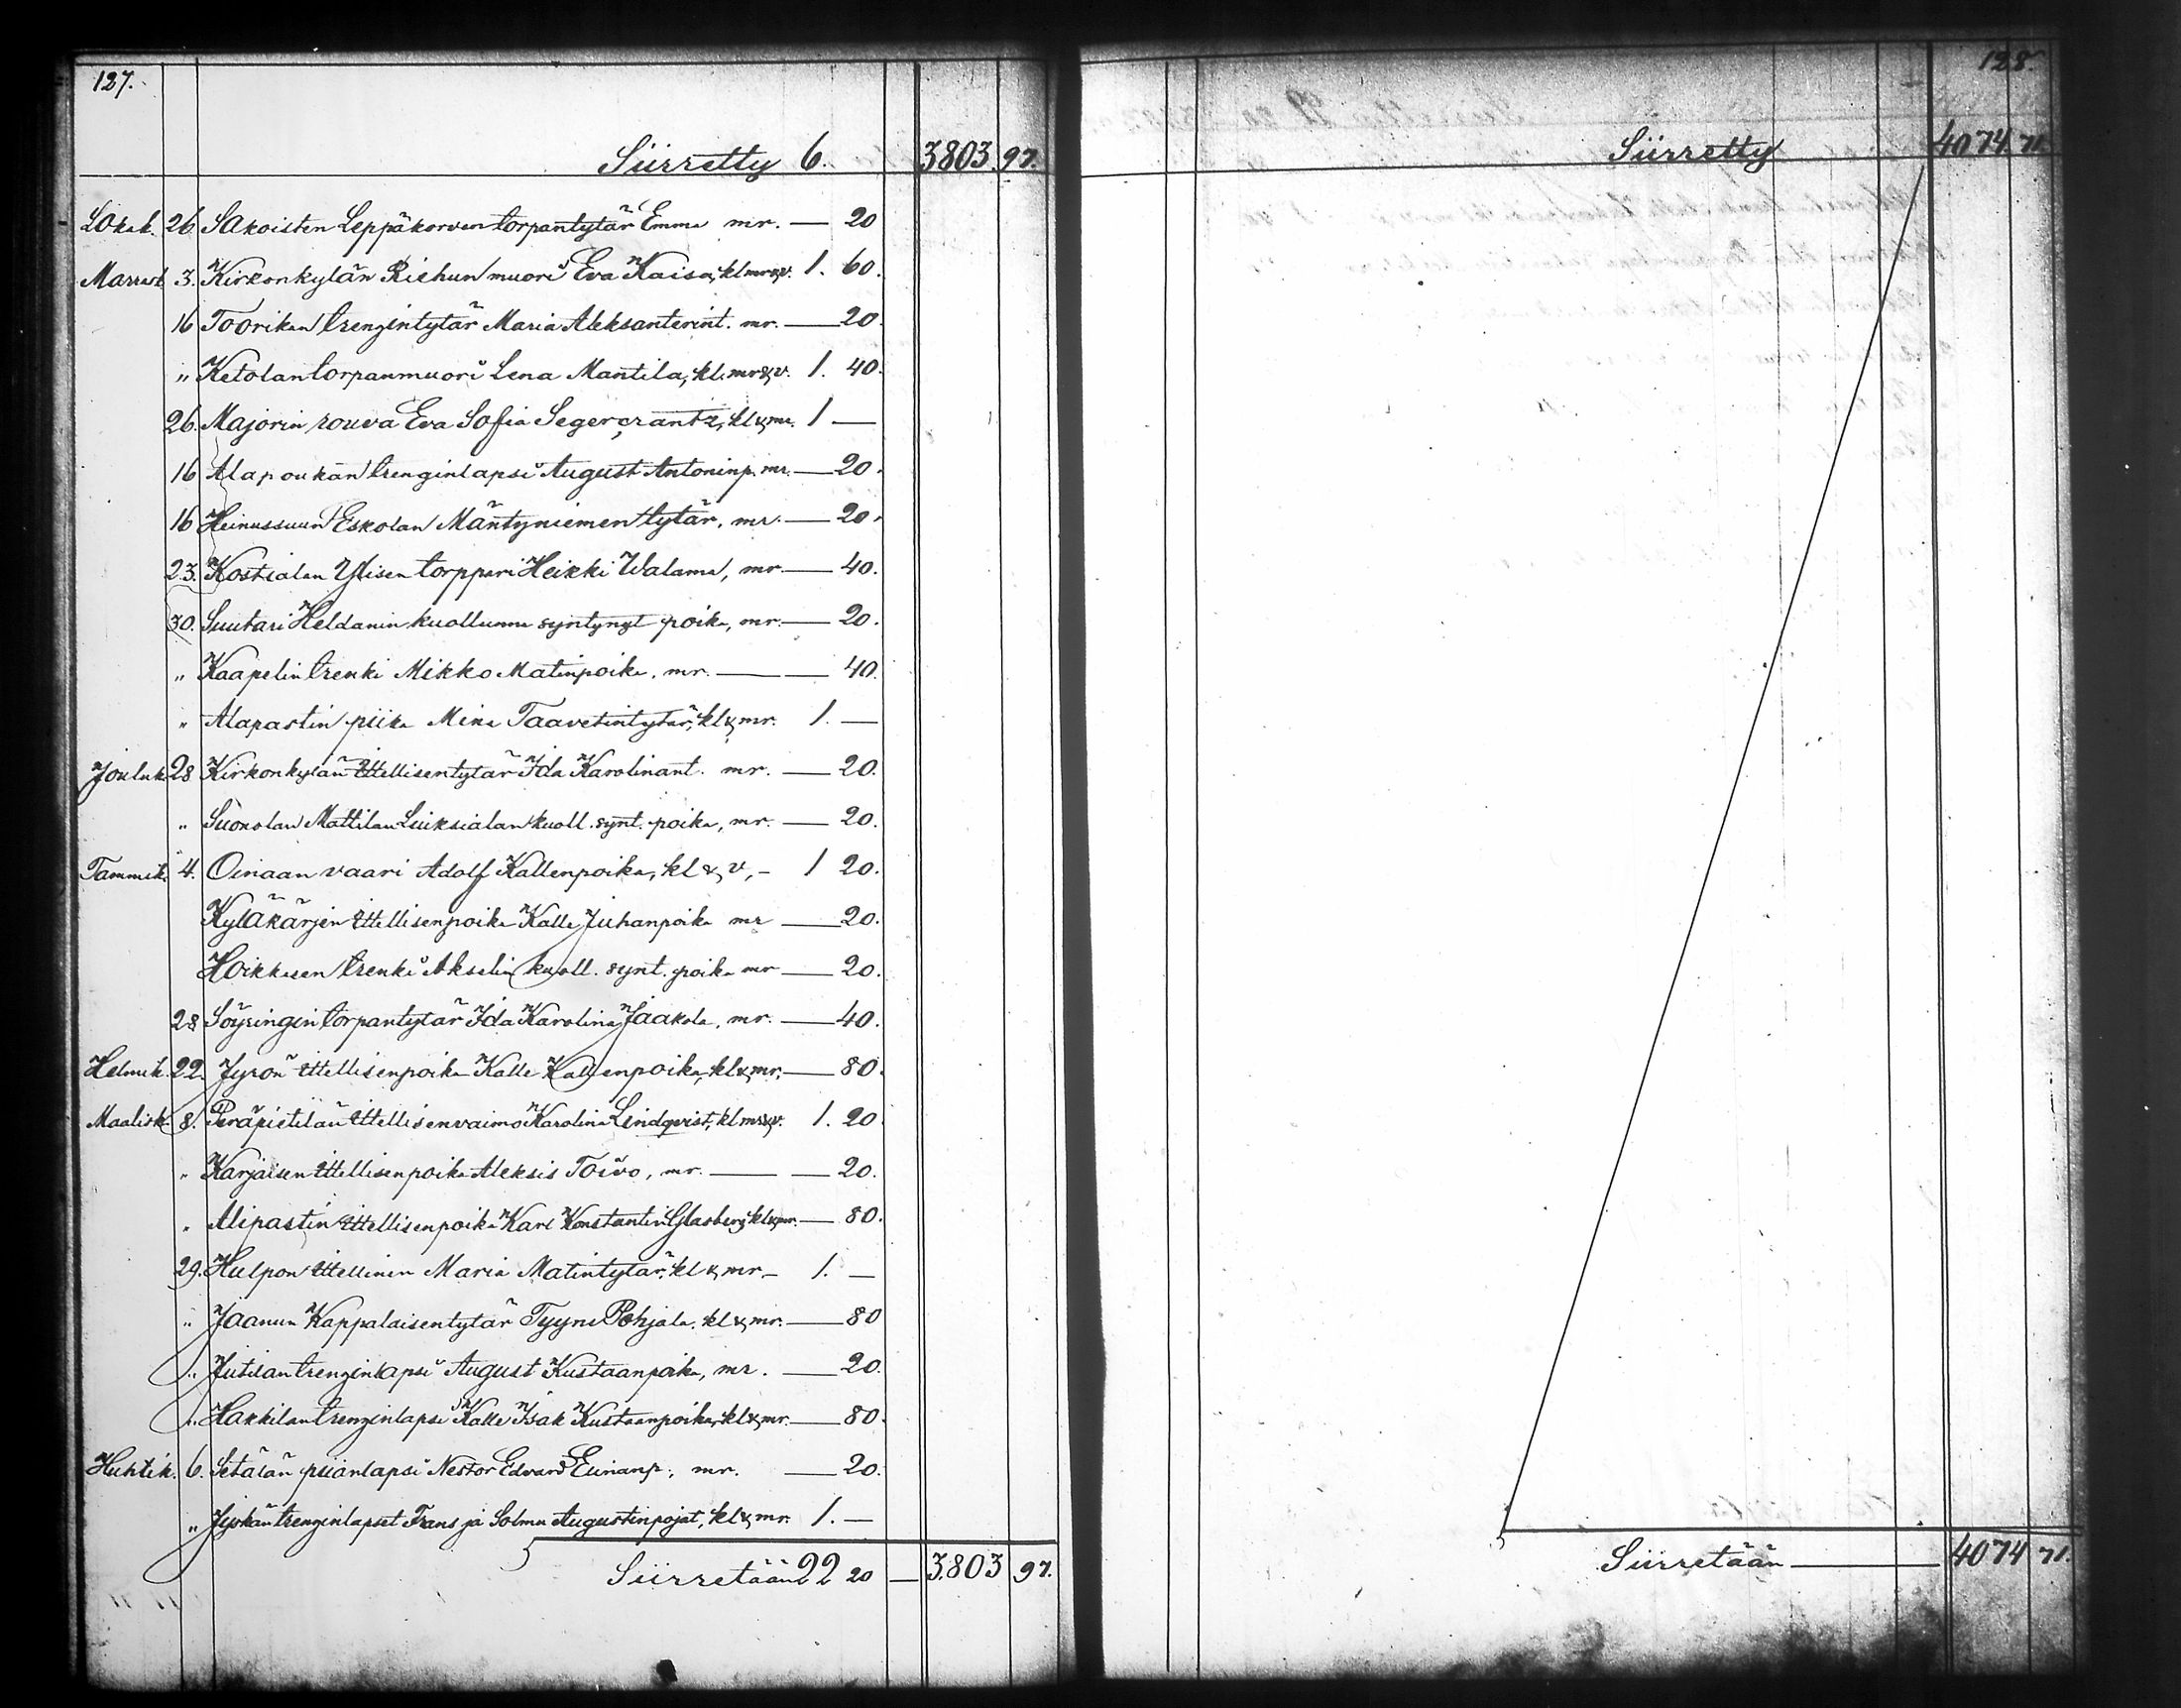 127.
Siirretty 6. 3803. 97.
Lokak. 26 Sakoisten Leppäkorven torpantytär Emma mr. — 20
Marrask. 3. Kirkonkylän Riehun muori Eva Kaisa, kl mr & v. 1. 60.
16 Toorikan trengintytär Maria Aleksanterint. mr. — 20.
„ Ketolan torpanmuori Lena Mantila, kl. mr & v. 1. 40.
26. Majorin rouva Eva Sofia Segercrantz, kl & mr. 1 —
16 Alapoukan trenginlapsi August Antoninp. mr. — 20.
16 Heinussuun Eskolan Mäntyniemen tytär, mr. — 20.
23. Kostialan Ylisen torppari Heikki Walama, mr. — 40.
30. Suutari Heldanin kuolluna syntynyt poika, mr. — 20.
„ Kaapelin trenki Mikko Matinpoika, mr. — — 40.
„ Alapastin piika Mina Taavetintytär, kl & mr. 1. —
Jouluk. 28 Kirkonkylän ittellisentytär Ida Karolinant. mr. — 20.
„ Suonolan Mattilan Luiksialan kuoll. synt. poika, mr. — 20.
Tammik. 4. Oinaan vaari Adolf Kallenpoika, kl & v, - 1 20.
Kyläkärjen ittellisenpoika Kalle Juhanpoika mr — 20.
Hoikkasen trenki Akselin kuoll. synt. poika mr — 20.
28 Söyringin torpantytär Ida Karolina Jaakola, mr. — 40.
Helmik. 22. Jyrön ittellisenpoika Kalle Kallenpoika, kl & mr. — 80.
Maalisk. 8. Peräpietilän ittellisenvaimo Karolina Lindqvist, kl mr & v. 1. 20.
„ Karjaisen ittellisenpoika Aleksis Toivo, mr. — — 20.
„ Alipastin ittellisenpoika Karl Konstantin Glasberg kl & mr. — 80.
29. Hulpon ittellinen Maria Matintytär, kl & mr. - 1. —
„ Jaanun Kappalaisentytär Tyyne Pohjala. kl & mr. — 80
„ Jutilan trenginlapsi August Kustaanpoika, mr. — 20.
„ Hakkilan trenginlapsi Kalle Isak Kustaanpoika, kl & mr. — 80.
Huhtik. 6. Setälän piianlapsi Nestor Edvard Eevanp., mr. — 20.
„ Jyskän trenginlapset Frans ja Solmu Augustinpojat, kl & mr. 1. —
Siirretään 22 20 — 3803 97.
128.
Siirretty 4074. 71.
Siirretään — 4074 71.